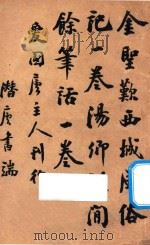 金聖歎西城風俗
記一卷湯卿謀閒
餘筆話一卷
愛國廬主人刊行
潛庐書端